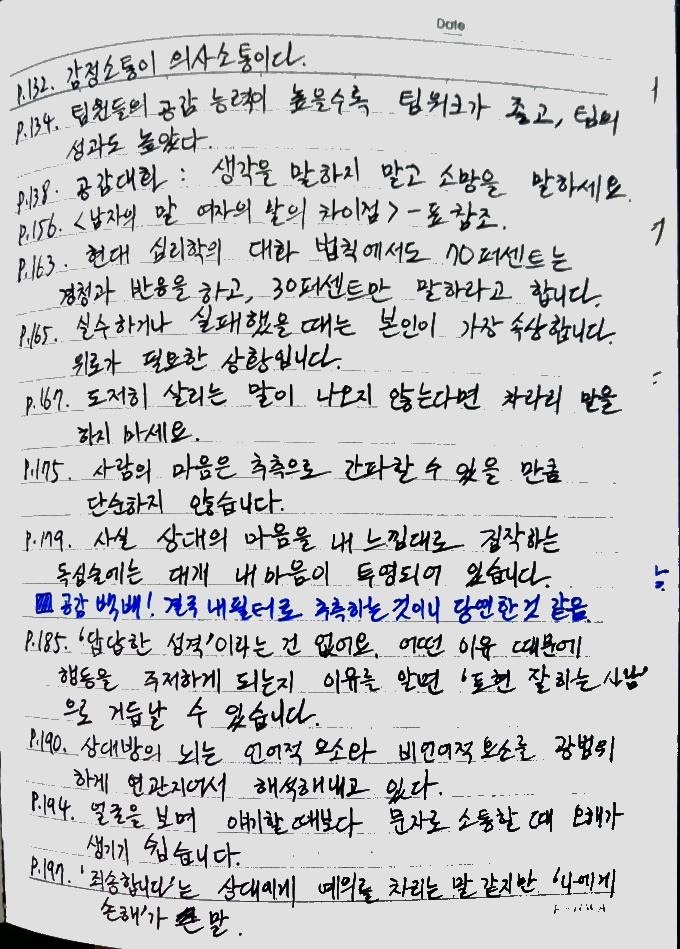 Date
p.132. 감정소통이 의사소통이다.
p.134. 팀원들의 공감 능력이 높을수록 팀워크가 좋고, 팀의
성과도 높았다.
p.138. 공감대화 : 생각을 말하지 말고 소망을 말하세요.
p.156. <남자의 말 여자의 말의 차이점> - 표 참조.
p.163. 현대 심리학의 대화 법칙에서도 70퍼센트는
경청과 반응을 하고, 30퍼센트만 말하라고 합니다.
p.165. 실수하거나 실패했을 때는 본인이 가장 속상합니다.
위로가 필요한 상황입니다.
p.167. 도저히 살리는 말이 나오지 않는다면 차라리 말을
하지 마세요.
p.175. 사람의 마음은 추측으로 간파할 수 있을 만큼
단순하지 않습니다.
p.179. 사실 상대의 마음을 내 느낌대로 짐작하는
독심술에는 대개 내 마음이 투영되어 있습니다.
공감 백배! 결국 내 필터로 추측하는 것이니 당연한 것 같음.
p.185. '답답한 성격'이라는 건 없어요. 어떤 이유 때문에
행동을 주저하게 되는지 이유를 알면 '표현 잘 하는 사람'
으로 거듭날 수 있습니다.
p.190. 상대방의 뇌는 언어적 요소와 비언어적 요소를 광범위
하게 연관지어서 해석해내고 있다.
p.194. 얼굴을 보며 얘기할 때보다 문자로 소통할 때 오해가
생기기 쉽습니다.
p.197. '죄송합니다'는 상대에게 예의를 차리는 말 같지만 '나에게
손해'가 큰 말.